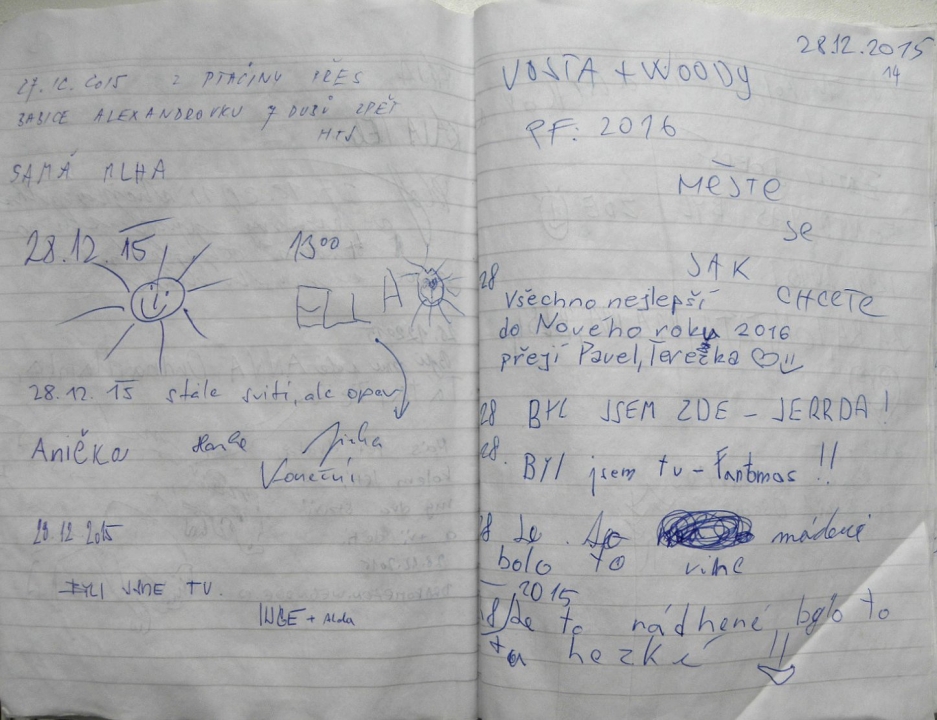 27.12.2015 Z PTAČINU PŘES
BABICE ALEXANDROVKU 7 DUBŮ ZPĚT
SAMÁ MLHA
28.12.15 13⁰⁰
ELLA
28.12.15 stále svítí, ale
Anička Jirka
Voneční
28.12 2015
BYLI JSME TU.
INGE +
28.12.2015
14
VOSTA + WOODY
PF: 2016
MĚJTE
se
JAK
CHCETE
28
Všechno nejlepší
do Nového roku 2016
přejí Pavel, Terezka
28 BYL JSEM ZDE - JERRDA!
28. BYl jsem tu - Fantomas!!
28 Je to
bolo to
2015
28 Je to nádhené bylo to
tu hezkí !!